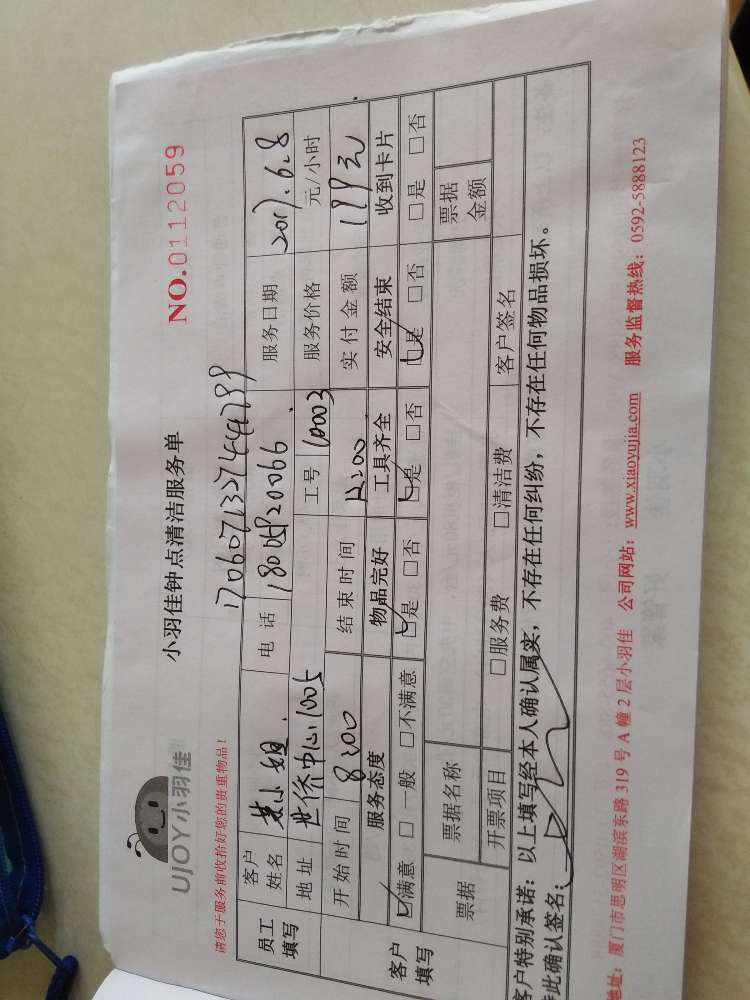 UJOY小羽佳
小羽佳钟点清洁服务单
NO.0112059
请您于服务前收拾好您的贵重物品！
员工填写
客户姓名 黄小姐 电话 服务日期 2017.6.8
地址 世侨中心1005 工号 10003 服务价格 元/小时
客户填写
开始时间 8:00 结束时间 12:00 实付金额 199元
服务态度 物品完好 工具齐全 安全结束 收到卡片
☑满意 □一般 □不满意 ☑是 □否 ☑是 □否 ☑是 □否 □是 □否
票据 票据名称 票据金额
开票项目 □服务费 □清洁费 客户签名
客户特别承诺：以上填写经本人确认属实，不存在任何纠纷，不存在任何物品损坏。
特此确认签名：
地址：厦门市思明区湖滨东路319号A幢2层小羽佳 公司网站：www.xiaoyujia.com 服务监督热线：0592-5888123